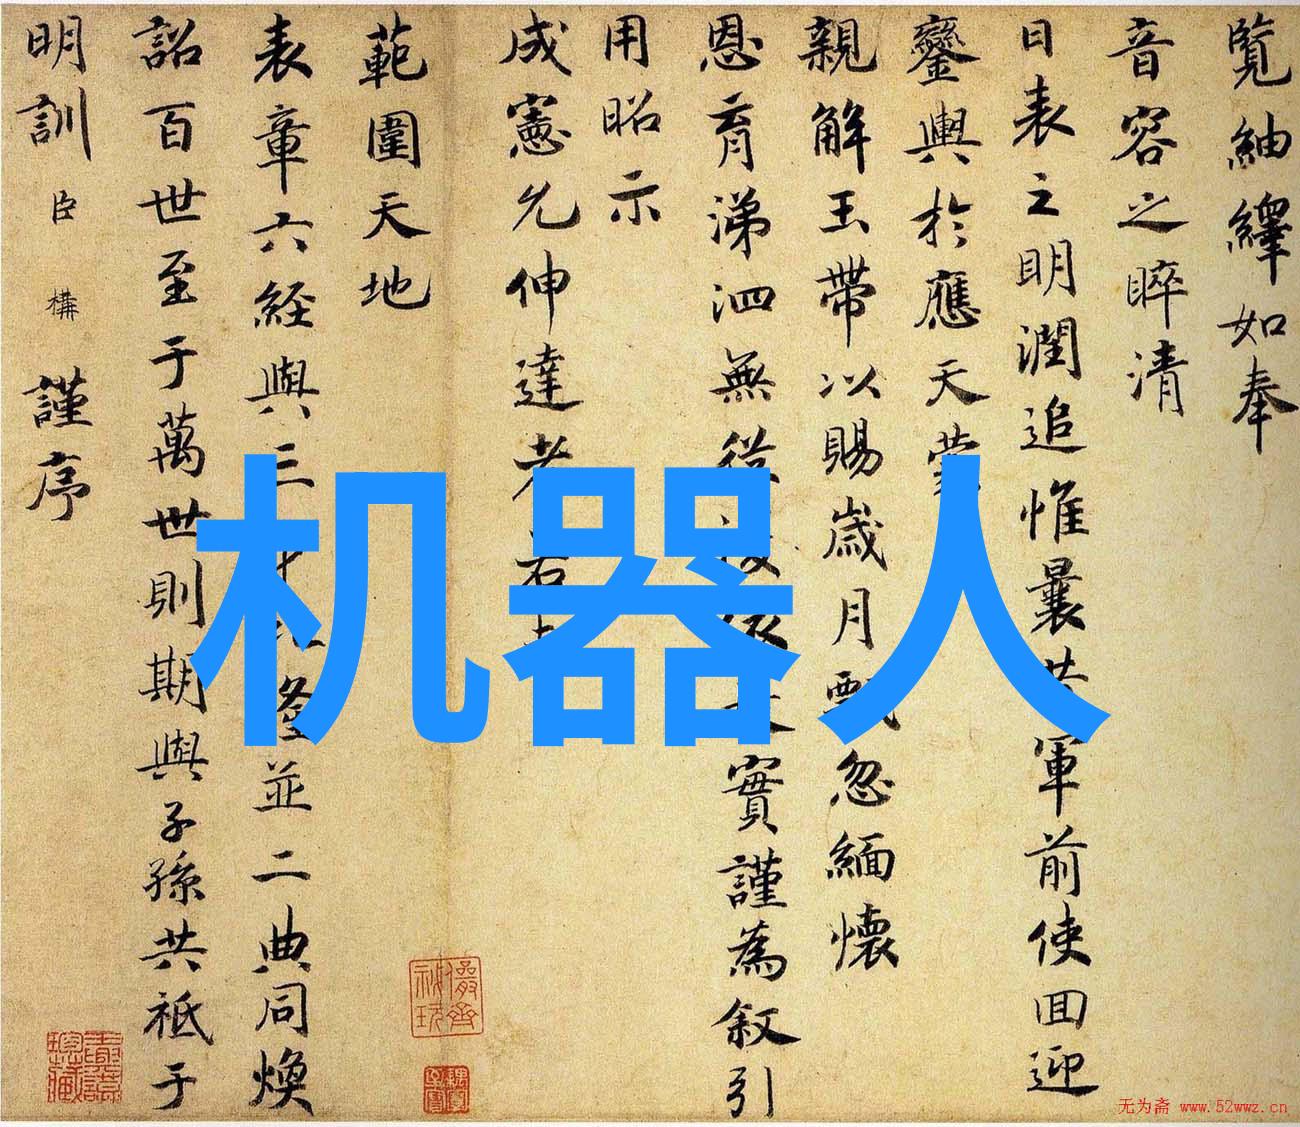 覽紬繹如奉
音容之晬清
日表之明潤追惟曩 軍前使回迎
鑾輿於應天蒙
親解玉帶以賜歲月 忽緬懷
恩育涕泗無從 實謹為叙引
用昭示
成憲允伸達孝
範圍天地
表章六経與三 並二典同煥
詔百世至于萬世則期與子孫共祗于
明訓臣構謹序
机器人
无为斋 www.52wwz.cn